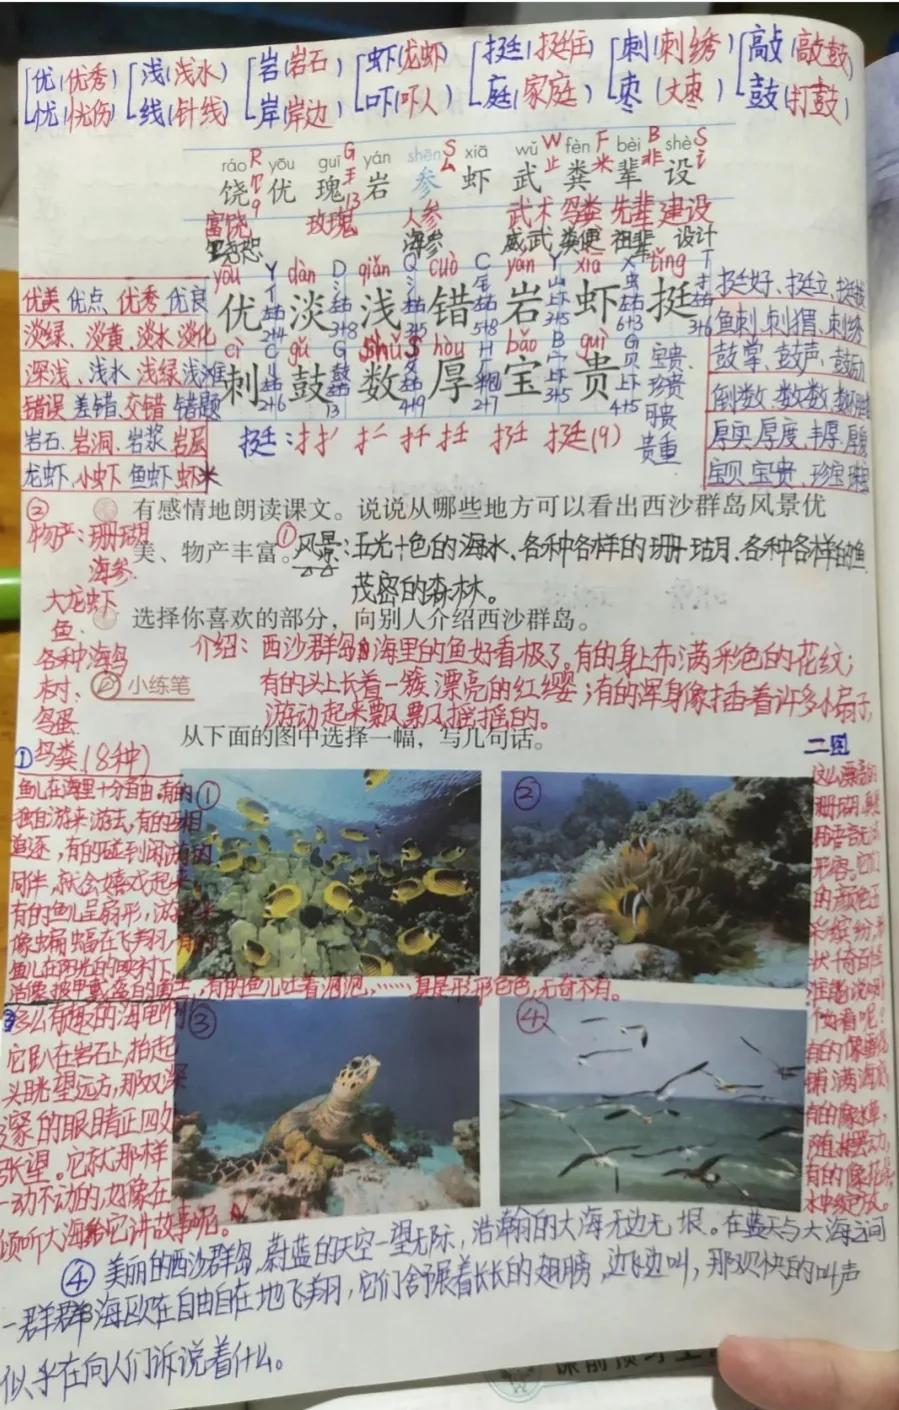 优(优秀) 浅(浅水) 岩(岩石) 虾(龙虾) 挺(挺住) 刺(刺绣) 敲(敲鼓)
忧(忧伤) 线(针线) 岸(岸边) 吓(吓人) 庭(家庭) 枣(大枣) 鼓(打鼓)
ráo yōu guī yán shēn xiā wǔ fèn bèi shè
饶 优 瑰 岩 参 虾 武 粪 辈 设
富饶 玫瑰 人参 武术 鸟粪 先辈 建设
海参 威武 粪便 祖辈 设计
yōu dàn qiǎn cuò yán xiā tǐng
优 淡 浅 错 岩 虾 挺
cì gǔ shǔ hòu bǎo guì
刺 鼓 数 厚 宝 贵
优美 优点、优秀、优良
淡绿、淡黄、淡水 淡化
深浅、浅水、浅绿 浅滩
错误 差错、交错 错题
岩石、岩洞、岩浆、岩层
龙虾、小虾 鱼虾、虾米
挺好、挺立、挺拔
鱼刺、刺猬、刺绣
鼓掌、鼓声、鼓励
倒数、数数、
厚实、厚度、丰厚、
宝贝、宝贵、珍宝
宝贵
珍贵
可贵
贵重
挺:
挺(9)
有感情地朗读课文。说说从哪些地方可以看出西沙群岛风景优
美、物产丰富。①风景:五光十色的海水、各种各样的珊瑚、各种各样的鱼
茂密的森林。
②
物产:珊瑚
海参
大龙虾
鱼
各种海鸟
树
鸟蛋
鸟类(8种)
选择你喜欢的部分,向别人介绍西沙群岛。
介绍:西沙群岛的海里的鱼好看极了。有的身上布满彩色的花纹;
有的头上长着一簇漂亮的红缨;有的浑身像插着许多小扇子,
游动起来飘飘摇摇的。
小练笔
从下面的图中选择一幅,写几句话。
①
鱼儿在海里十分自由,有的
独自游来游去,有的互相
追逐,有的碰到
同伴,就会嬉戏起来
有的鱼儿呈扇形,游起来
像蝙蝠在飞翔,有的
鱼儿在阳光的映衬下,
有的鱼儿吐着泡泡,……真是形形色色,无奇不有。
① ②
二图
珊瑚
形容。它们
的颜色五
彩缤纷,形
状千奇百怪
有的像
铺满海底
有的像水草,
随 摆动,
有的像花朵
水中绽放。
③ ④
多么有趣的海龟啊
它趴在岩石上,抬起
头眺望远方,那双深
邃的眼睛正四处
张望。它就那样
一动不动的,好像在
倾听大海给它讲故事呢。
④ 美丽的西沙群岛,蔚蓝的天空一望无际,浩瀚的大海无边无垠。在蓝天与大海之间
一群群海鸥在自由自在地飞翔,它们舒展着长长的翅膀,边飞边叫,那欢快的叫声
似乎在向人们诉说着什么。